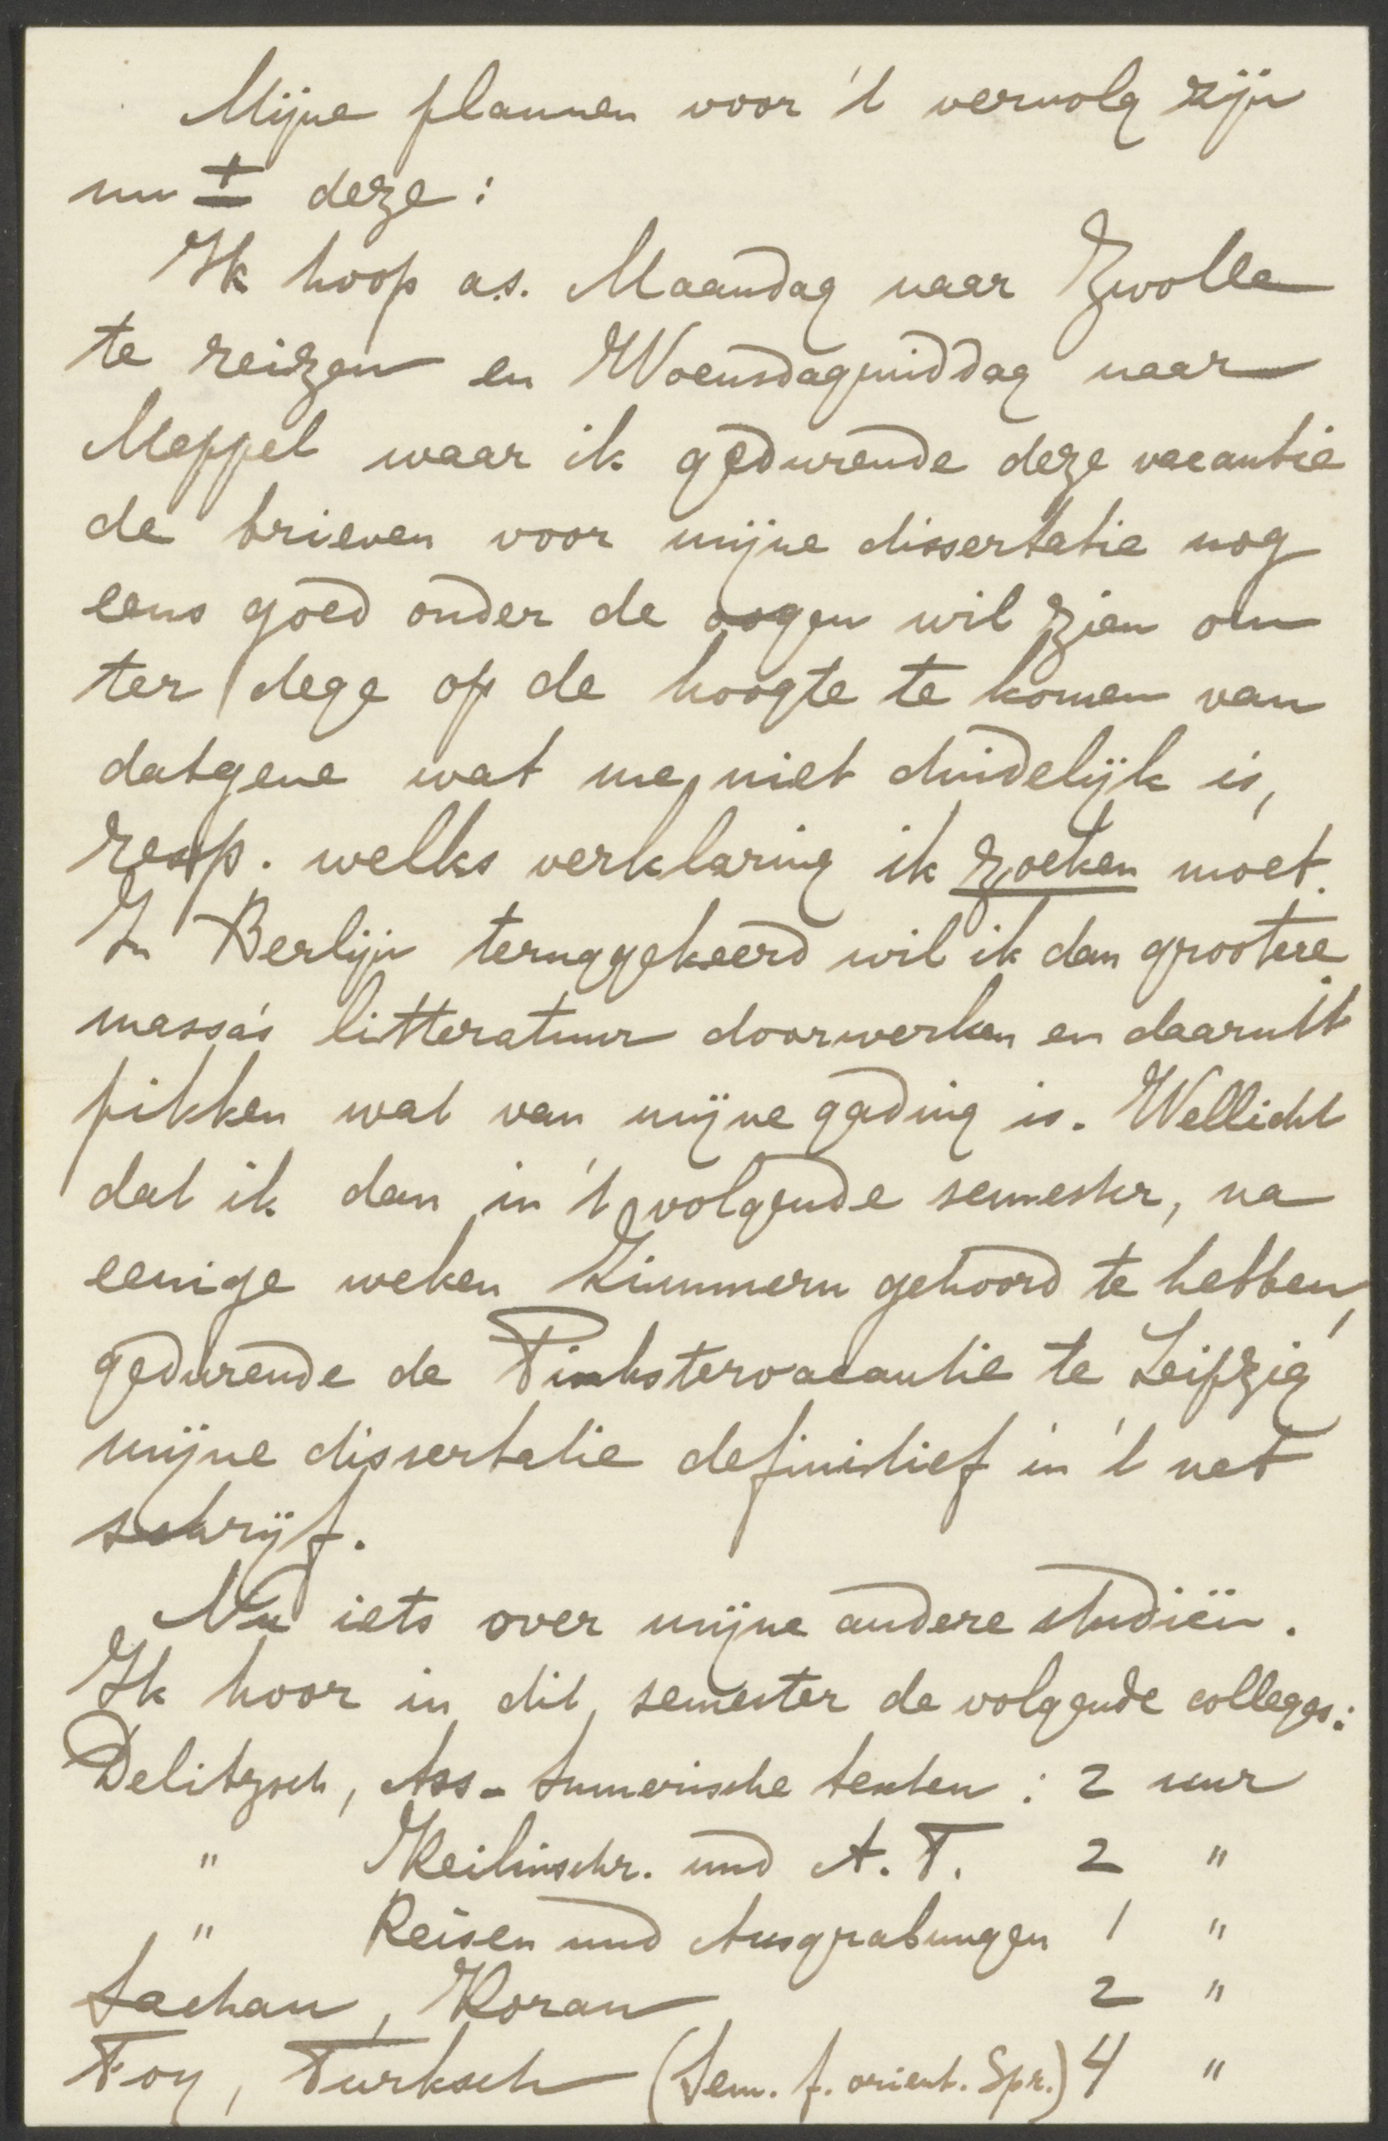 Mijne plannen voor 't vervolg zijn
nu ± deze:
Ik hoop a.s. Maandag naar Zwolle
te reizen en Woensdagmiddag naar
Meppel waar ik gedurende deze vacantie
de brieven voor mijne dissertatie nog
eens goed onder de oogen wil zien om
ter dege op de hoogte te komen van
datgene wat me niet duidelijk is,
resp. welks verklaring ik zoeken moet.
In Berlijn teruggekeerd wil ik dan grootere
massa's litteratuur doorwerken en daaruit
pikken wat van mijne gading is. Wellicht
dat ik dan in 't volgende semester, na
eenige weken Zimmern gehoord te hebben,
gedurende de Pinkstervacantie te Leipzig
mijne dissertatie definitief in 't net
schrijf.
Nu iets over mijne andere studiën.
Ik hoor in dit semester de volgende colleges:
Delitzsch, Ass-Sumerische texten: 2 uur
" Keilinschr. und A. T. 2 "
" Reisen und Ausgrabungen 1 "
Sachau, Koran 2 "
Foy, Turksch (Sem. f. orient. Spr.) 4 "